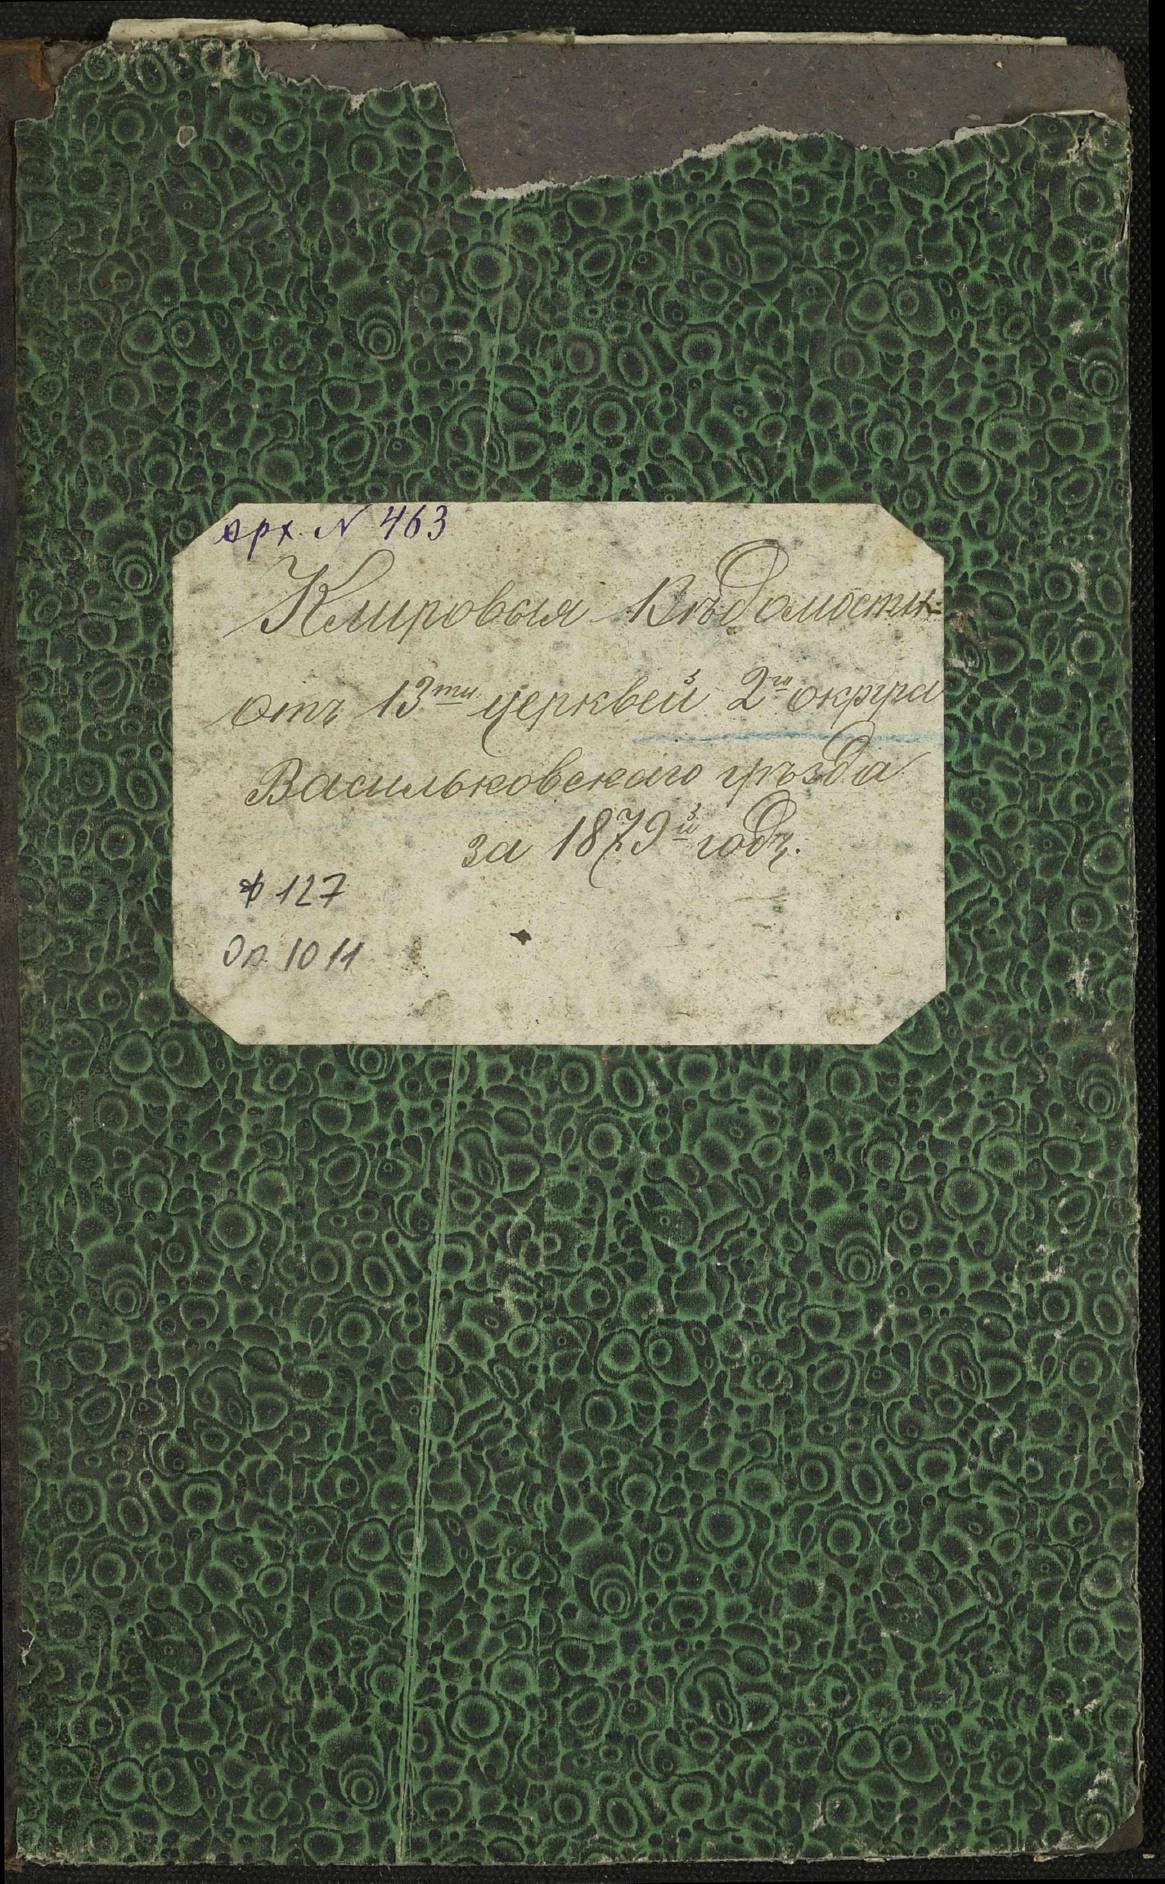 арх. N 463
Клировыя Вѣдомости
отъ 13ти церквей 2го округа
Васильковскаго уѣзда
за 1879й годъ.
ф 127
Оп. 1011